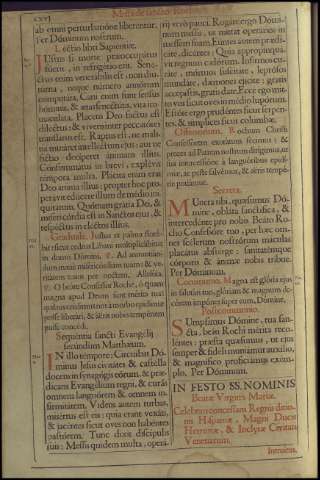 Missa de sancto Rocho
cxvj
ab omni perturbatione liberentur.
Per Dominum nostrum.
Lectio libri Sapientiæ.
IUstus si morte præoccupatus
fuerit, in refrigerio erit. Senectus
enim venerabilis est, non diuturna,
neque numero annorum
computata. Cani enim sunt sensus
hominis, & ætas senectutis, vita immaculata.
Placens Deo factus est
dilectus: & vivens inter peccatores
translatus est. Raptus est, ne malitia
mutaret intellectum ejus: aut ne
fictio deciperet animam illius.
Consummatus in brevi, explevit
tempora multa. Placita enim erat
Deo anima illius: propter hoc properavit
educere illum de medio iniquitatum.
Quoniam gratia Dei, &
misericordia est in Sanctos ejus, &
respectus in electos illius.
Graduale. Justus ut palma florebit
sicut cedrus Libani multiplicabitur
in domo Domini. ℣. Ad annuntiandum
mane misericordiam tuam & veritatem
tuam per noctem. Alleluia.
℣. O beate Confessor Roche, ô quam
magna apud Deum sunt merita tua
Sequentia sancti Evangelij
secundum Matthæum.
IN illo tempore: Circuibat Dominus
Jesus civitates & castella
docens in synagogis eorum, & prædicans
Evangelium regni, & curans
omnem languorem & omnem infirmitatem.
Videns autem turbas,
misertus est eis: quia erant vexati,
& jacentes sicut oves non habentes
pastorem. Tunc dixit discipulis
suis: Messis quidem multa, operarij
verò pauci. Rogate ergo Dominum
messis, ut mittat operarios in
messem suam. Euntes autem prædicate,
dicentes: Quia appropinquavit
regnum cælorum. Infirmos curate,
mortuos suscitate, leprosos
mundate, dæmones ejicite: gratis
accepistis, gratis date. Ecce ego mitto
vos sicut oves in medio luporum.
Estote ergo prudentes sicut serpentes,
& simplices sicut columbæ.
Offertorium.
Secreta.
MUnera tibi, quæsumus Domine,
oblata sanctifica, &
intercedente pro nobis Beato Rocho
Confessore tuo, per hoc omnes
scelerum nostrorum maculas
placatus absterge: sanitatemque
corporis & animæ nobis tribue.
Per Dominum.
Communio. Magna est gloria ejus
in salutari tuo, gloriam & magnum decorem
impones super eum, Domine.
Postcommunio.
SUmpsimus Domine, tua sancta,
beati Rochi merita recolentes:
præsta quæsumus, ut ejus
semper & fidei muniamur auxilio,
& magnifico proficiamus exemplo.
Per Dominum.
IN FESTO SS. NOMINIS
Beatæ Virginis Mariæ.
Celebratur ex concessione Regni dominij
Hispaniæ, Magni Ducis
Hetruriæ, & Inclytæ Civitatis
Venetiarum.
Introitus.